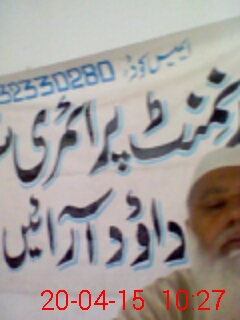 ایمیس کوڈ: 32330280
نمنٹ پرائمری
داؤد آرائیں
20-04-15 10:27